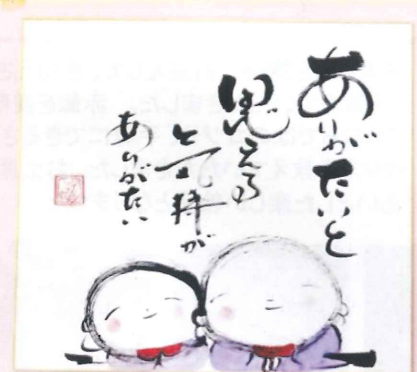 ありがたいと
思える
気持が
ありがたい